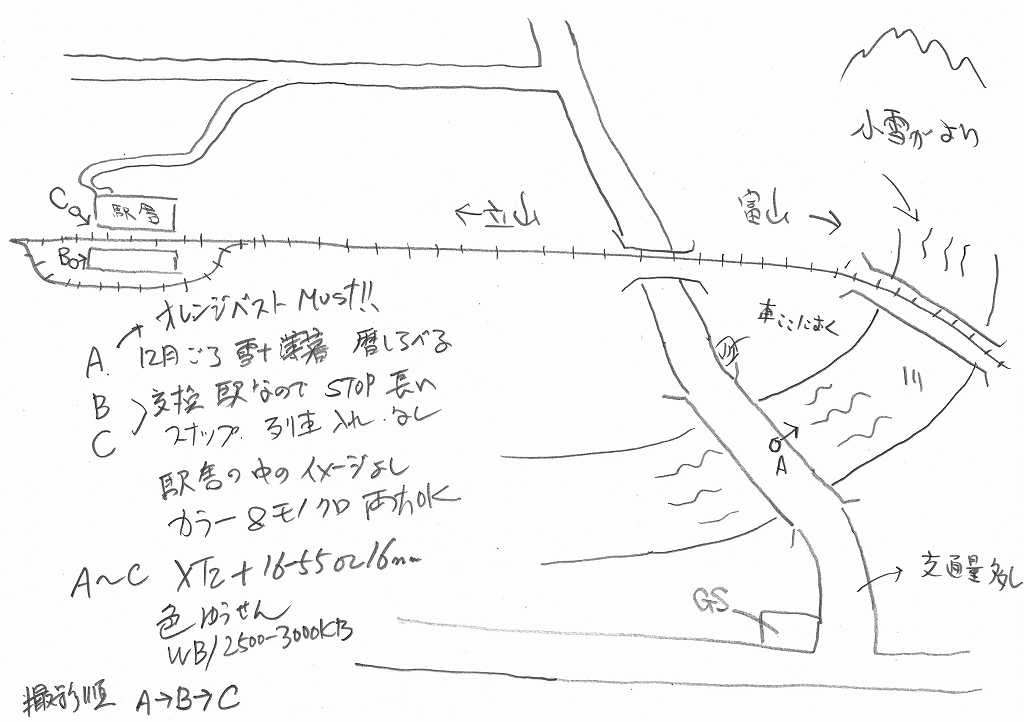 小雪がよい
C
駅舎
←立山
富山→
B
オレンジベスト Must!!
車ここにおく
A. 12月ごろ 雪+薄暮 暦しらべる
B 交換駅なので STOP 長い
C スナップ. 列車 入れ.なし
駅舎の中のイメージよし
カラー&モノクロ 両方OK
川
A
A〜C XT2+16-55 or 16mm
色ゆうせん
WB/2500-3000KB
交通量多し
GS
撮影順 A→B→C